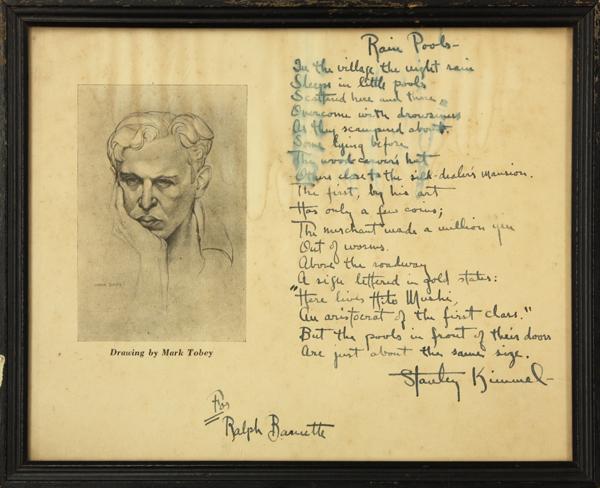 Rain Pools-
In the village the night rain
Sleeps in little pools
Scattered here and there,
Overcome with drowsiness
As they scampered about.
Some lying before
The wood carver's hut
Others close to the silk-dealer's mansion.
The first, by his art
Has only a few coins;
The merchant made a million yen
Out of worms.
Above the roadway
A sign lettered in gold states:
"Here lives Hito Mushi,
An aristocrat of the first class."
But the pools in front of their doors
Are just about the same size.
Stanley Kimmel-
Drawing by Mark Tobey
For
Ralph